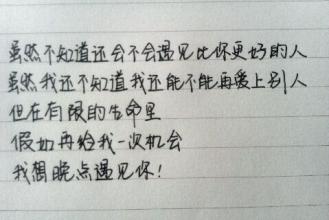 虽然不知道还会不会遇见比你更好的人
虽然我还不知道我还能不能再爱上别人
但在有限的生命里
假如再给我一次机会
我想晚点遇见你!